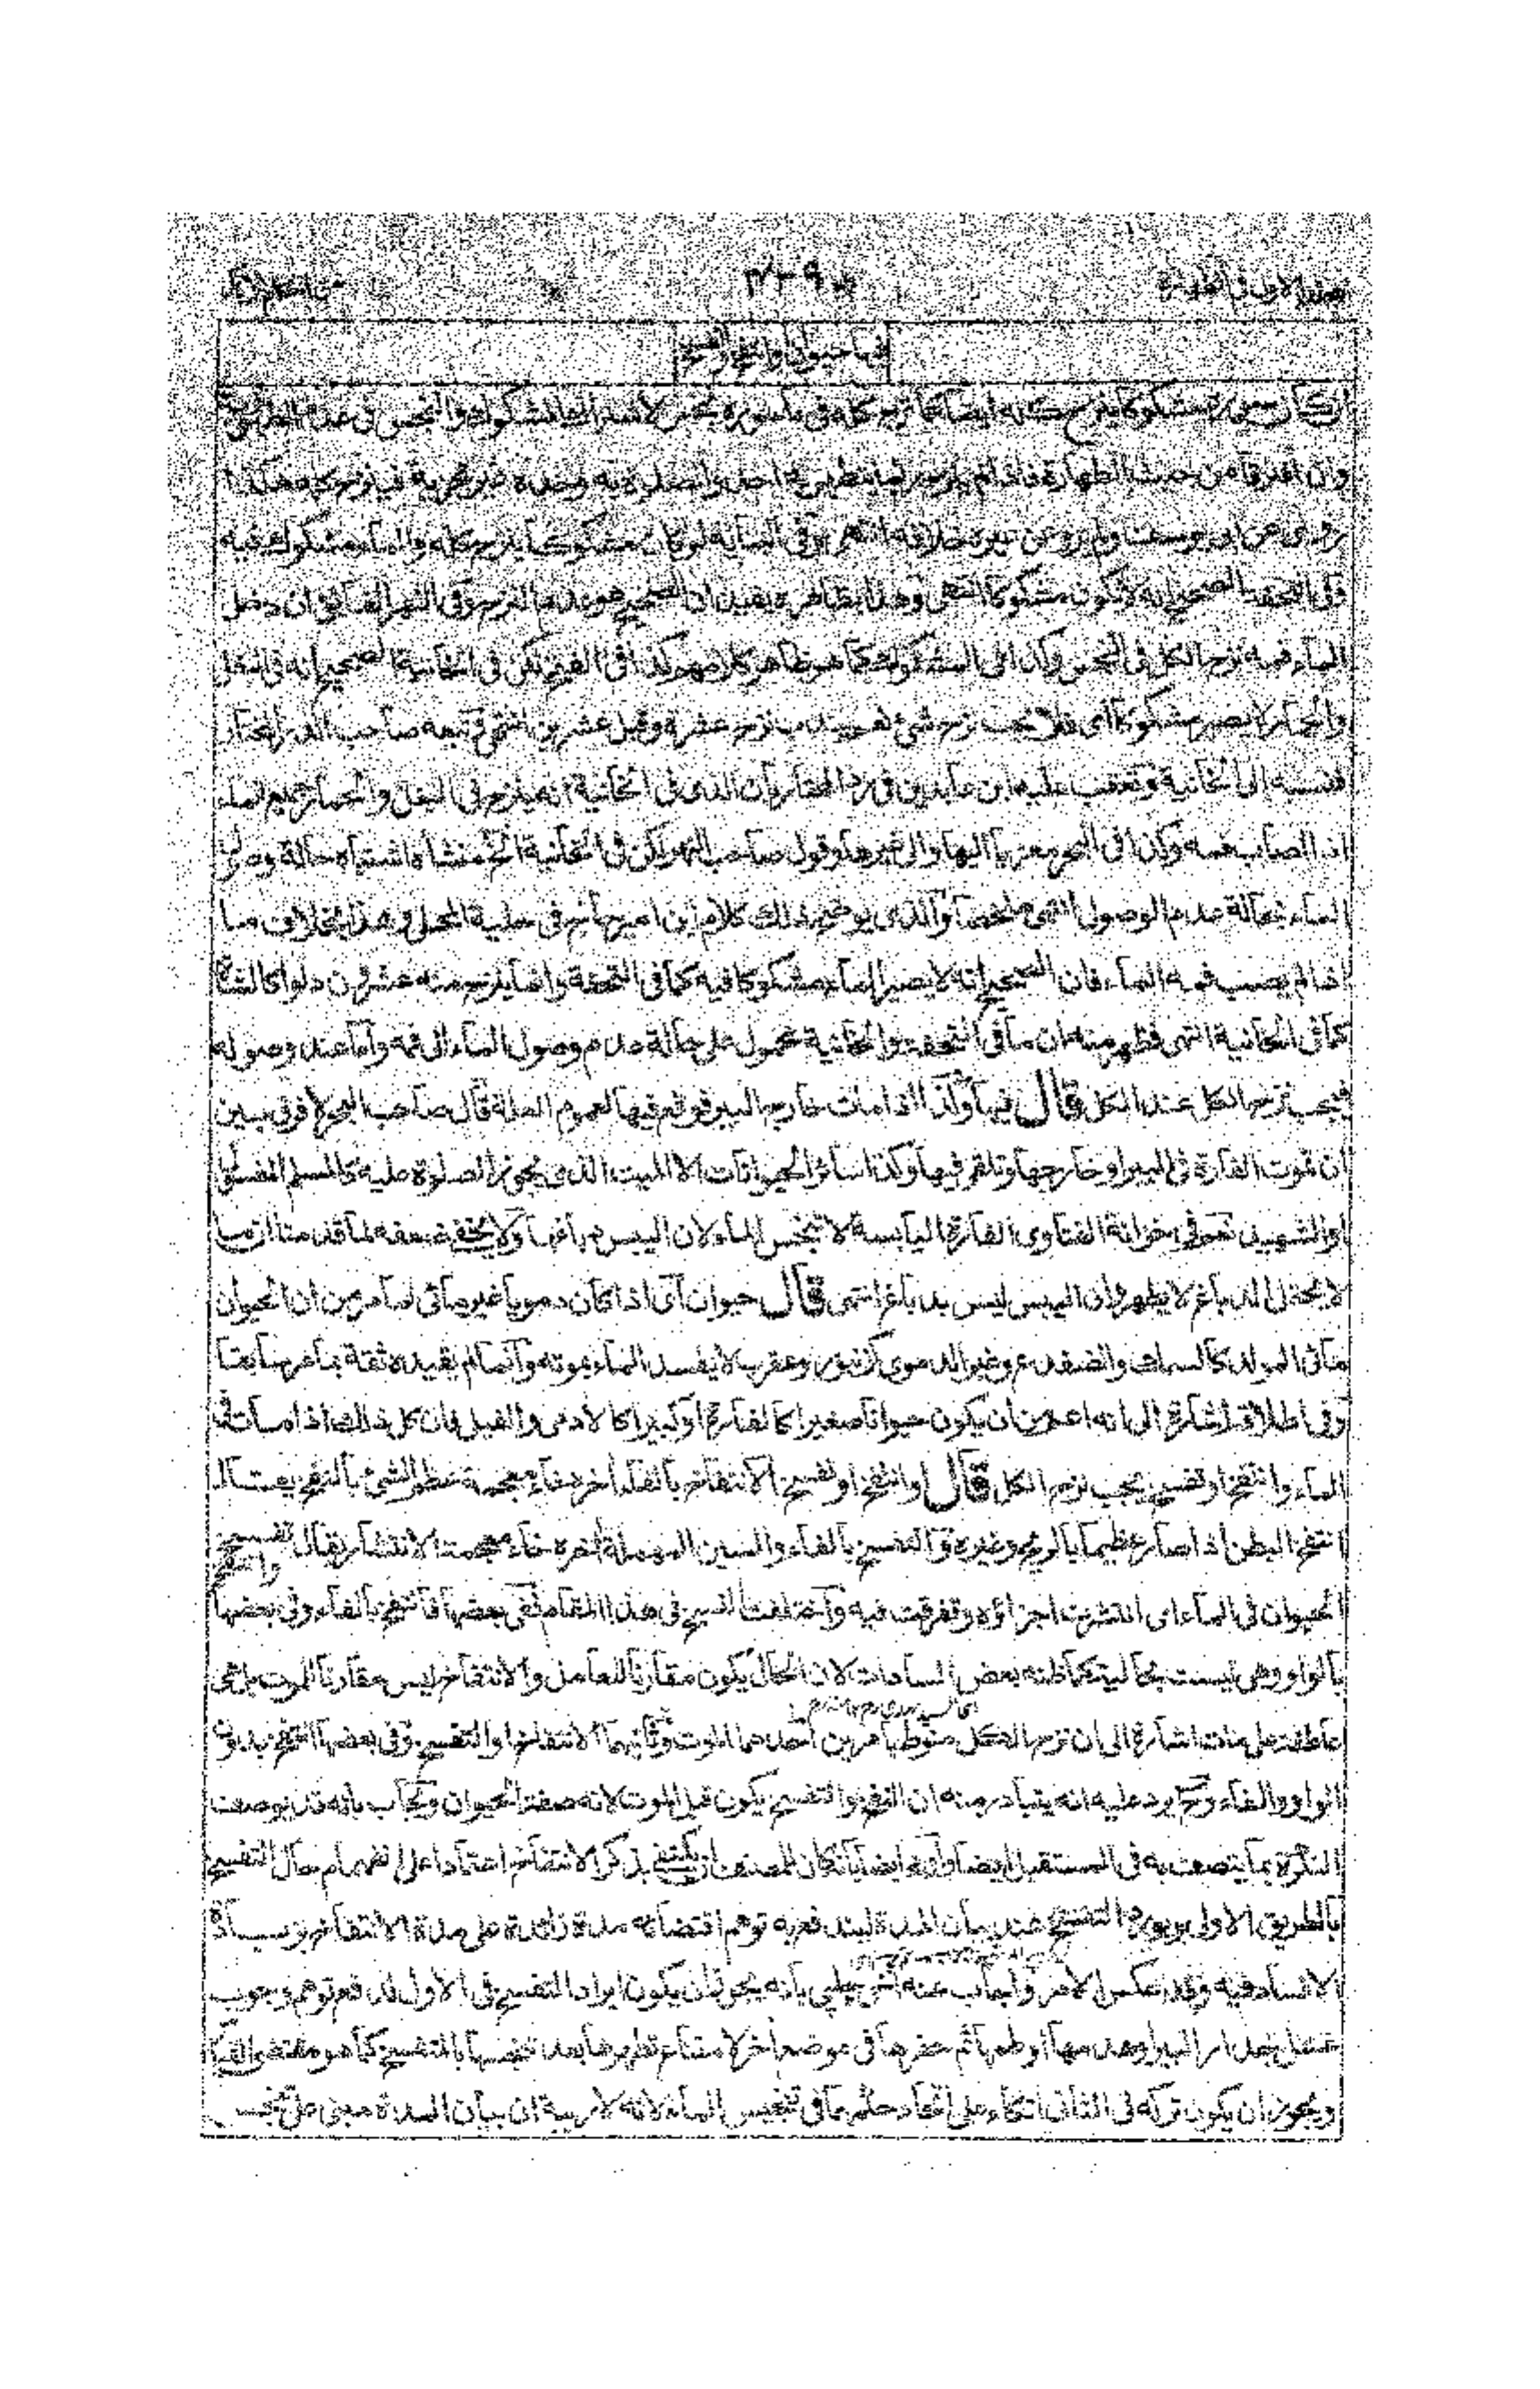 فيها حيوان وانتفخ او تفسخ
وان افترقا من حيث الطهارة فاذا لم
روى عن ابى يوسف ولم يرو عن غيره خلافه انتهى وفى لو كان مشكوكا ينزح كله والماء مشكوك فيه
وفى التحفة الصحيح انه لا يكون مشكوكا انتهى وهذا بظاهره يفيد ان الصحيح هو عدم النزح وفى النهر الفائق ان دخل
الماء فمه نزح الكل فى النجس وكذا فى المشكوك كما هو ظاهر كلامهم كذا فى الفتح لكن فى الخانية الصحيح انه فى البغل
والحمار لا يصير مشكوكا اى فلا يجب نزح شئ نعم يندب نزح عشرة وقيل عشرين انتهى وتبعه صاحب الدر المختار
فنسبه الى الخانية وتعقب عليه ابن عابدين فى رد المحتار بان الذى فى الخانية انه ينزح فى البغل والحمار جميع الماء
اذا اصاب فمه وكذا فى البحر معزيا اليها والى غيرها وقول صاحب النهر لكن فى الخانية الخ منشأه اشتباه حالة وصول
الماء بحالة عدم الوصول انتهى ملخصا والذى يوضح ذلك كلام ابن امير حاج فى حلية المحلى وهذا بخلاف ما
اذا لم يصب فمه الماء فان الصحيح انه لا يصير الماء مشكوكا فيه كما فى التحفة وانما ينزح منه عشرون دلوا كالشاة
كما فى الخانية انتهى فظهر منه ان ما فى التحفة والخانية محمول على حالة عدم وصول الماء الى فمه واما عند وصوله
فيجب نزح الكل عند الكل قال فيها وكذا اذا مات خارج البير فوقع فيها لعموم العلة قال صاحب البحر لا فرق بين
ان تموت الفارة فى البير او خارجها وتلقى فيها وكذا سائر الحيوانات الا الميت الذى يجوز الصلوة عليه كالمسلم المغسول
او الشهيد نعم فى خزانة الفتاوى الفارة اليابسة لا تنجس الماء لان اليبس دباغها ولا يخفى ضعفه لما قدمنا ان ما
لا يحتمل الدباغ لا يطهر وان اليبس ليس بدباغ انتهى قال حيوان اى اذا كان دمويا غير مائى لما مر من ان الحيوان
مائى المولد كالسمك والضفدع وغير الدموى كزنبور وعقرب لا يفسد الماء بموته وانما لم يقيده ثقة بما مر سابقا
وفى اطلاقه اشارة الى انه اعم من ان يكون حيوانا صغيرا كالفارة او كبيرا كالادمى والفيل فان كل ذلك اذا مات فى
الماء وانتفخ او تفسخ يجب نزح الكل قال وانتفخ او تفسخ الانتفاخ بالفاء اخره خاء معجمة عظم الشئ بالنفخ يقال
انتفخ البطن اذا صار عظيما بالريح وغيره والتفسخ بالفاء والسين المهملة اخره خاء معجمة الانتشار يقال تفسخ
الحيوان فى الماء اى انتشرت اجزاؤه وتفرقت فيه واختلفت النسخ فى هذا المقام ففى بعضها فانتفخ بالفاء وفى بعضها وانتفخ
بالواو وهى ليست بحالية كما ظنه بعض السادات لان الحال يكون مقارنا للعامل والانتفاخ ليس مقارنا للموت بل هى
عاطفة على مات اشارة الى ان نزح الكل منوط بامرين احدهما الموت وثانيهما الانتفاخ او التفسخ وفى بعضها انتفخ بدون
الواو والفاء ويرد عليه انه يتبادر منه ان النفخ والتفسخ يكون قبل الموت لانه صفة الحيوان ويجاب بانه قد يوصف
النكرة بما يتصف به فى المستقبل ايضا واورد ايضا بانه كان للمصنف ان يكتفى بذكر الانتفاخ اعتمادا على انفهام حال التفسخ
بالطريق الاولى ويورد التفسخ عند بيان المدة ليندفع به توهم اقتضائه مدة زائدة على مدة الانتفاخ بزيادة
الافساد فيه وقد عكس الامر واجاب عنه اخى چلپى بانه يجوز ان يكون ايراد التفسخ فى الاول لدفع توهم وجوب
غسل جدار البير او هدمها او طمها ثم حفرها فى موضع اخر لامتناع تطهرها بعد تنجسها بالتفسخ كما هو مقتضى القياس
ويجوز ان يكون تركه فى الثانى اتكاء على اتحاد حكمهما فى تنجيس الماء لانه لا ريبة ان بيان المدة مبنى على تنجس